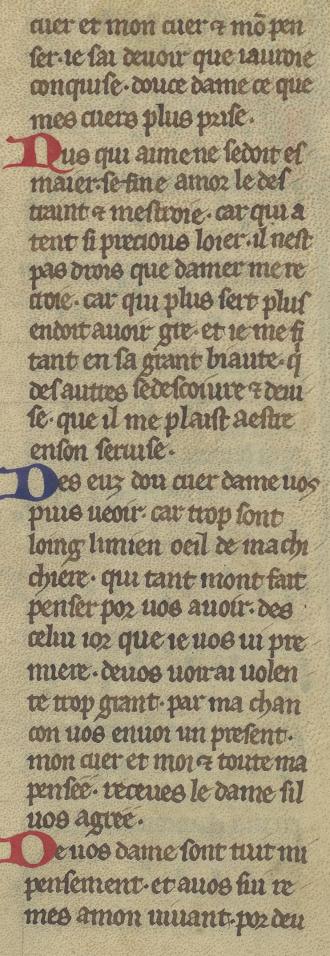 cuer et mon cuer ⁊ mō pen
ser· ie sai deuoir que iauroie
conquise· douce dame ce que
mes cuers plus prise·
Nus qui aime ne se doit es
maier· se fine amor le des
traint ⁊ mestroie· car qui a
tent si precious loier· il nest
pas drois que damer me re
croie· car qui plus sert plus
en doit auoir gre· et ie me fi
tant en sa grant biaute· q̄
des autres se desoiure ⁊ deui
se· que il me plaist a estre
en son seruise·
Des euz dou cuer dame uos
puis ueoir· car trop sont
loing li mien oeil de ma chi
chiere· qui tant mont fait
penser por uos auoir· des
celui ior que ie uos ui pre
miere· de uos uoirai uolen
te trop grant· par ma chan
con uos enuoi un present·
mon cuer et moi ⁊ toute ma
pensee· receues le dame sil
uos agree·
De uos dame sont tuit mi
pensement· et a uos sui re
mes a mon uiuant· por deu